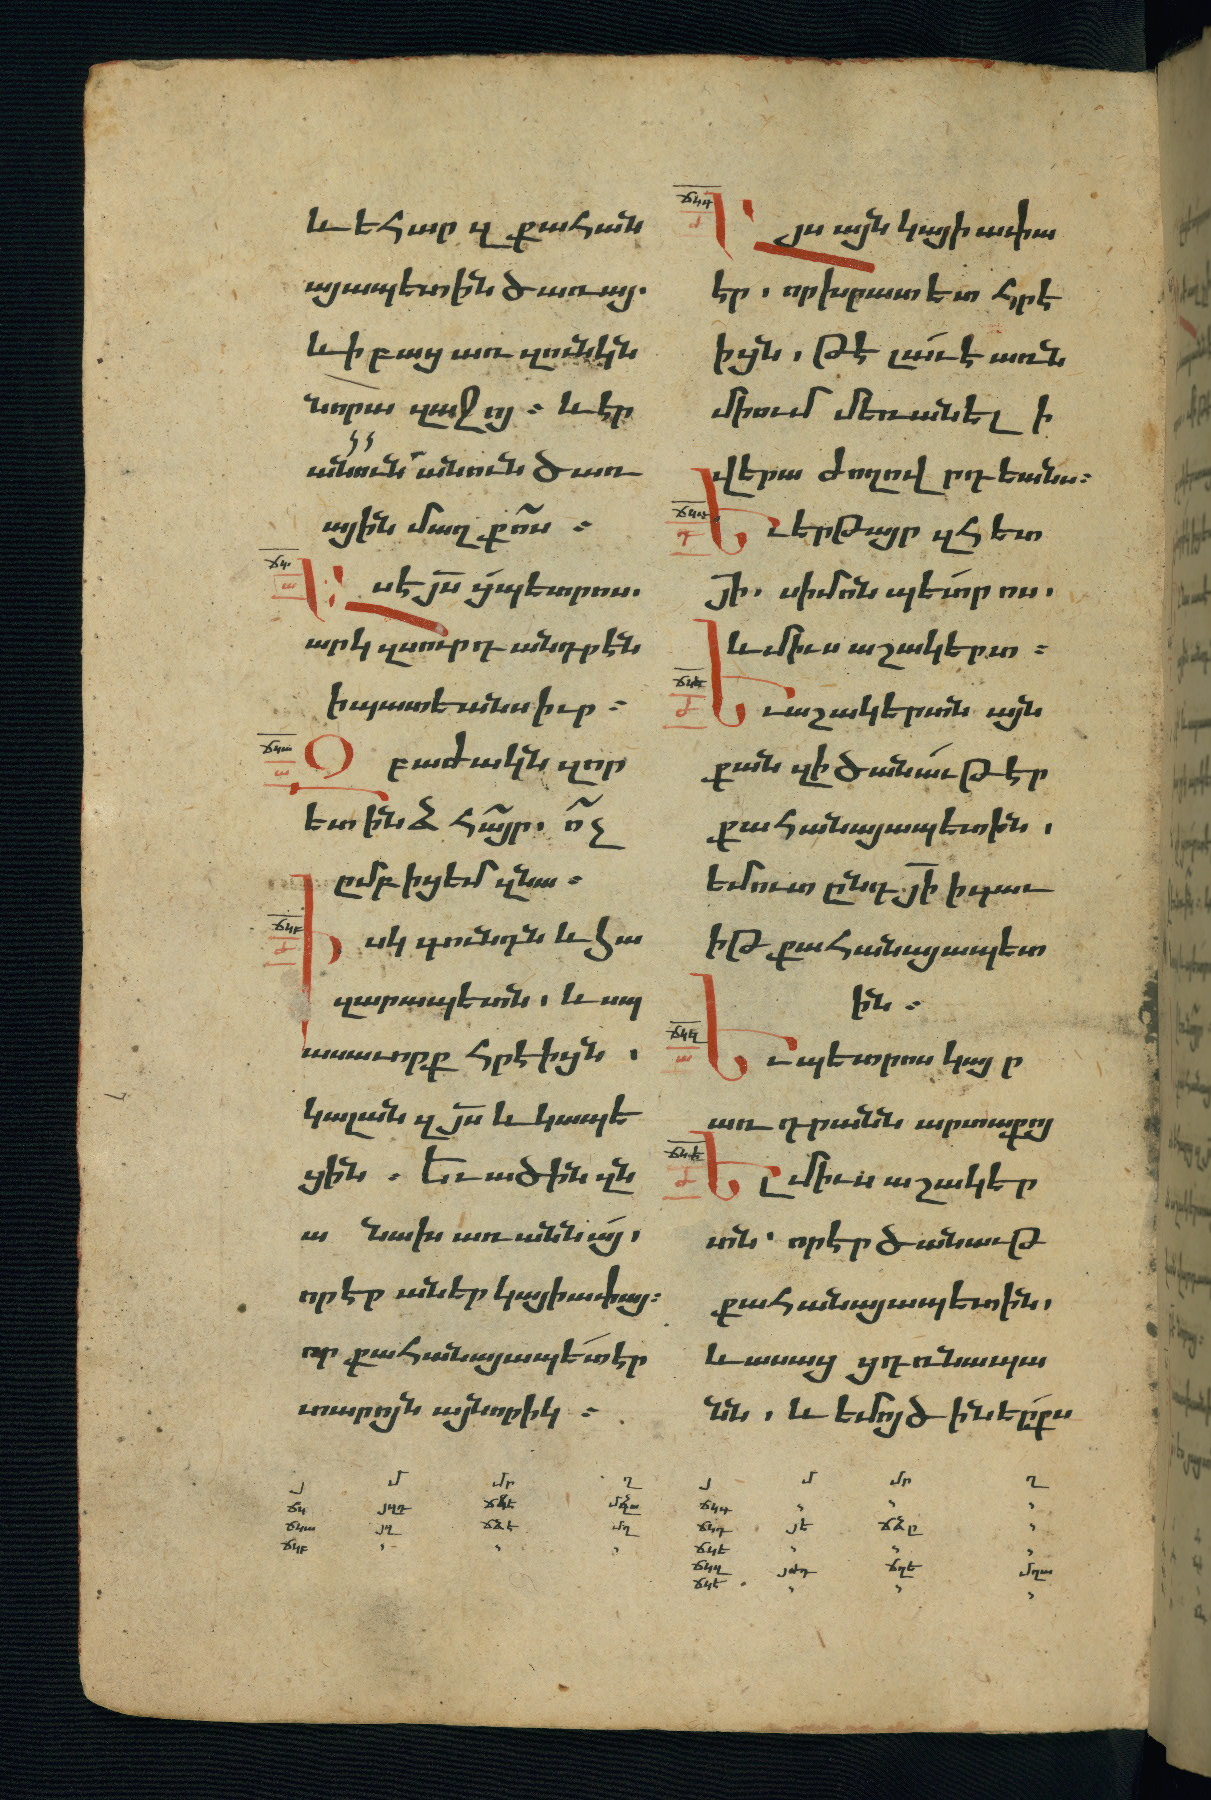 և եհար զքահան
այապետին ծառայ.
և ի բաց առ զունկն
նորա զաջոյ ։ և էր
անուն անուն ծառ
ային մաղքոս ։
Ասէ յս ցպետրոս.
արկ զսուրդ անդրէն
ի պատեանս իւր ։
Զբաժակն զոր
ետ ինձ հայր. ոչ
ըմբիցեմ զնա ։
Իսկ գունդն և հա
զարապետն, և սպ
ասաւորք հրէիցն ,
կալան զյս և կապե
ցին ։ Եւ ածին զն
ա նախ առ աննայ,
որ էր աներ կայիափայ։
որ քահանայապետ էր
տարոյն այնորիկ ։
ճկգ
Այս այն կայիափա
էր, որ խրատ ետ հրէ
իցն, թէ լաւ է առն
միում մեռանել ի
վերա ժողովրդեանս։
ճկդ
Երթայր զհետ
յի. սիմոն պետրոս.
և միւս աշակերտ ։
ճկե
Եւ աշակերտն այն
քան զի ծանաւթ էր
քահանայապետին ,
եմուտ ընդ յի ի գաւ
իթ քահանայապետ
ին ։
ճկզ
Եւ պետրոս կայր
առ դրանն արտաքոյ
ճկէ
Ել միւս աշակեր
տն՝ որ էր ծանաւթ
քահանայապետին,
և ասաց ցդռնապա
նն, և եմոյծ ի ներքս
յ մ մր ղ
ճկ
ճկա
ճկբ
յ մ մր ղ
ճկգ
ճկդ յե ճձը
ճկե
ճկզ
ճկէ